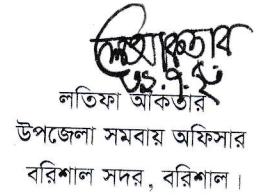 লতিফা আকতার
উপজেলা সমবায় অফিসার
বরিশাল সদর, বরিশাল।